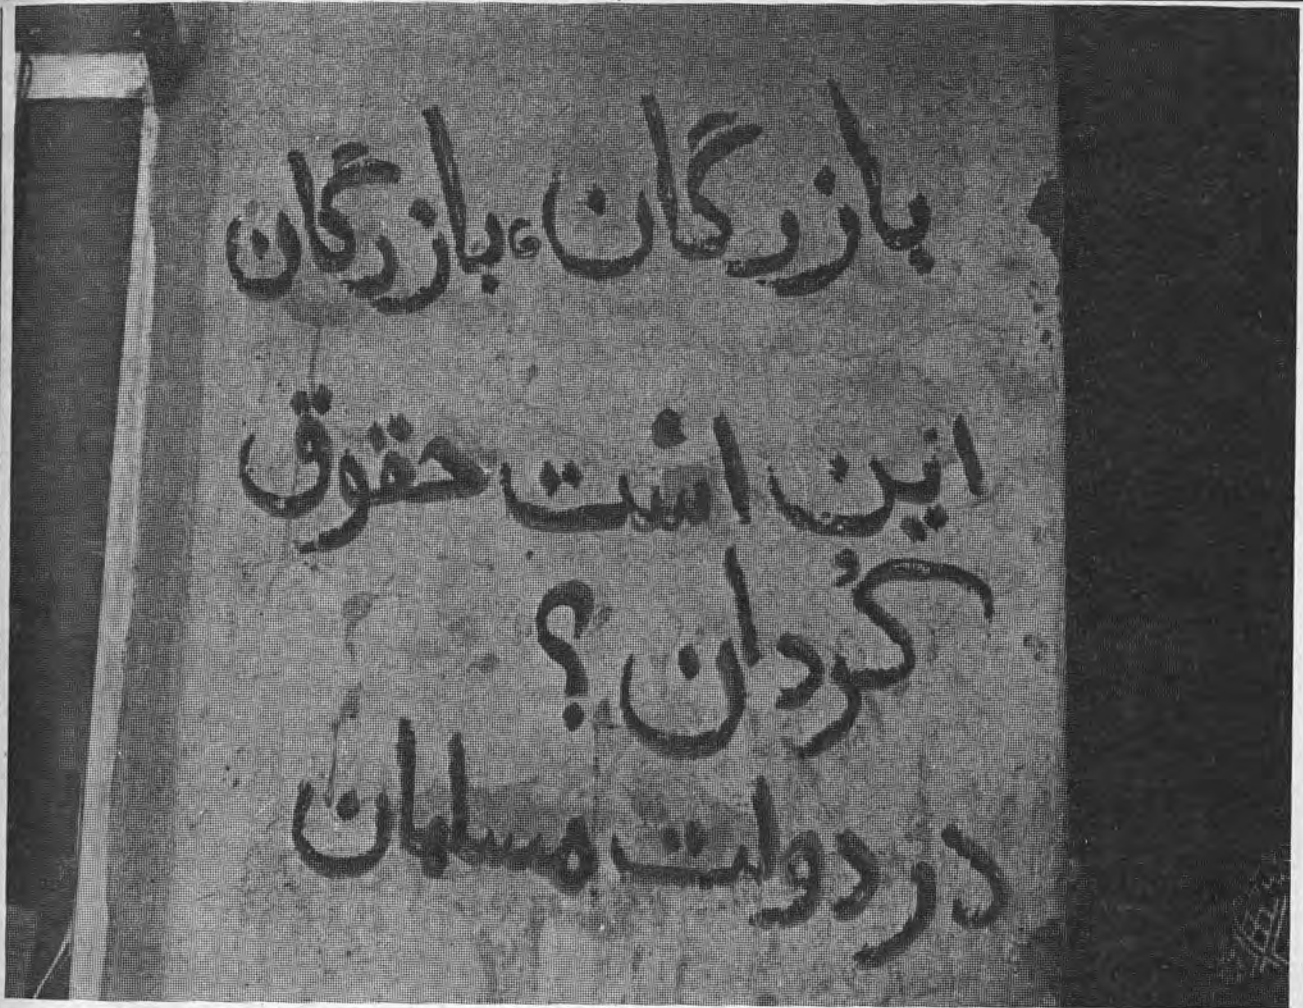 بازرگان، بازرگان
این است حقوق
کُردان؟
در دولت مسلمان